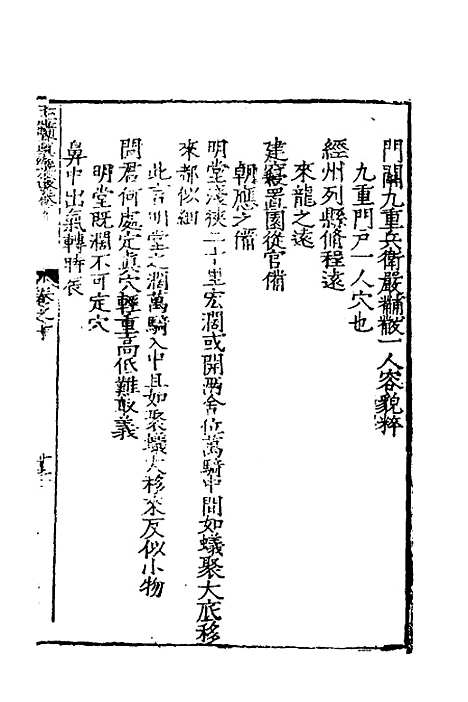 門關九重兵衛嚴黼黻一人容貌粹
九重門戸一人穴也
經州列縣脩程遠
來龍之遠
建寢置園從官備
朝應之備
明堂淺狹二十里宏濶或開兩舍位萬騎中間如蟻聚大底移
來都似細
此言明堂之濶萬騎入中且如聚蟻大移來反似小物
問君何處定眞穴輕重高低難取義
明堂旣濶不可定穴
鼻中出氣轉時長
卷之